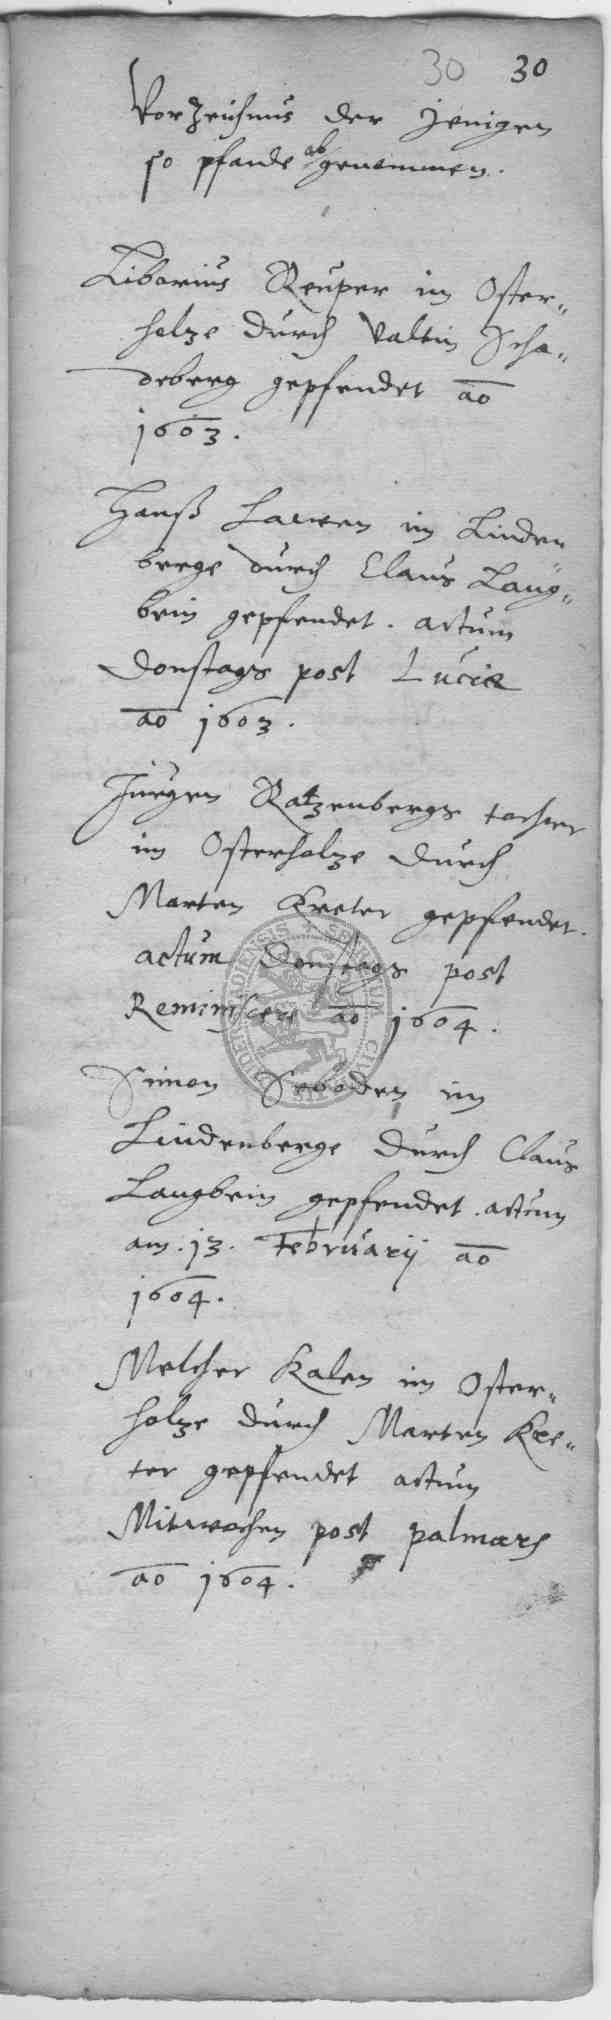 30 30
Vorzeichnus der jenigen
so pfande ab genommen.
Liborius Reuper im Oster-
holze durch Valtin Scha-
deberg gepfendet ao
1603.
Hanß Lawen im Linden
berge durch Claus Lang-
bein gepfendet. actum
Donstags post Luciæ
ao 1603.
Jurgen Ratzenbergs tochter
im Osterholze durch
Marten Kreter gepfendet.
actum Donstags post
Reminiscere ao 1604.
Simon Seboden im
Lindenberge durch Claus
Langbein gepfendet. actum
am. 13. Februarij ao
1604.
Melcher Kalen im Oster-
holze durch Marten Kre-
ter gepfendet actum
Mitwochen post palmar&#x75;m
ao 1604.